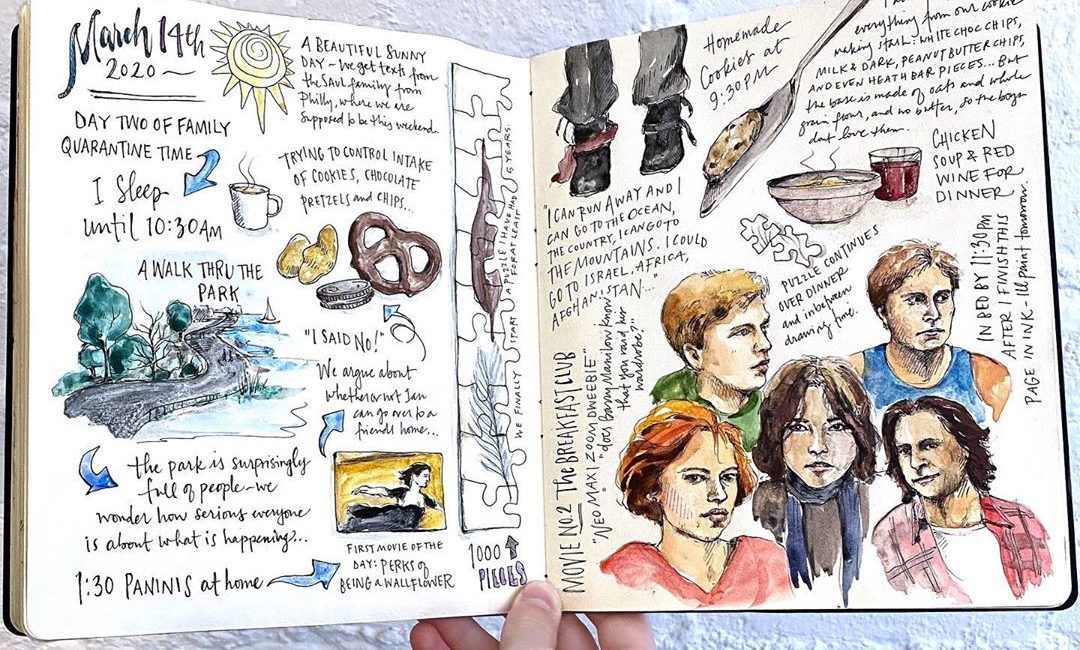 March 14th
2020
A BEAUTIFUL SUNNY
DAY - we get texts from
the SAUL family from
Philly, where we are
supposed to be this weekend.
DAY TWO OF FAMILY
QUARANTINE TIME
I Sleep
until 10:30AM
TRYING TO CONTROL INTAKE
OF COOKIES, CHOCOLATE
PRETZELS and CHIPS...
A WALK THRU THE
PARK
"I SAID NO!"
We argue about
whether or not Ian
can go over to a
friends home...
the park is surprisingly
full of people - we
wonder how serious everyone
is about what is happening?...
1:30 PANINIS at home
FIRST MOVIE OF THE
DAY: PERKS OF
BEING A WALLFLOWER
WE FINALLY START A PUZZLE I HAVE HAD FOR AT LEAST 5 YEARS.
1000
PIECES
Homemade
Cookies at
9:30PM
everything from our cookie
making stash: WHITE CHOC CHIPS,
MILK & DARK, PEANUT BUTTER CHIPS,
AND EVEN HEATH BAR PIECES... BUT
the base is made of oats and whole
grain flour, and no butter, so the boys
dont love them.
CHICKEN
SOUP & RED
WINE FOR
DINNER
"I CAN RUN AWAY AND I
CAN GO TO THE OCEAN,
THE COUNTRY, I CAN GO TO
THE MOUNTAINS. I COULD
GO TO ISRAEL, AFRICA,
AFGHANISTAN..."
PUZZLE CONTINUES
OVER DINNER
and in between
drawing time.
IN BED BY 11:30PM
AFTER I FINISH THIS
PAGE IN INK - I'll paint tomorrow.
MOVIE NO.2 The BREAKFAST CLUB
"NEO MAXI ZOOM DWEEBIE"
"does Barry Manilow know
that you raid his
wardrobe?"